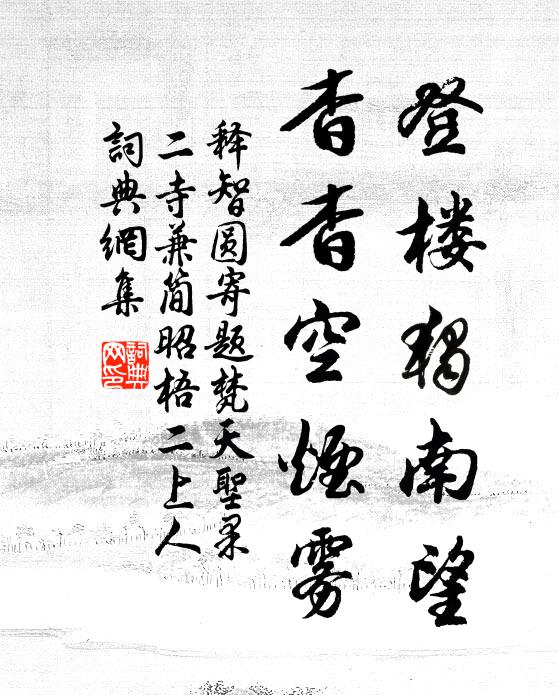 登楼独南望
杳杳空煙雾
释智圆寄题梵天聖果
二寺兼简昭梧二上人
詞典網集
詞典
网印